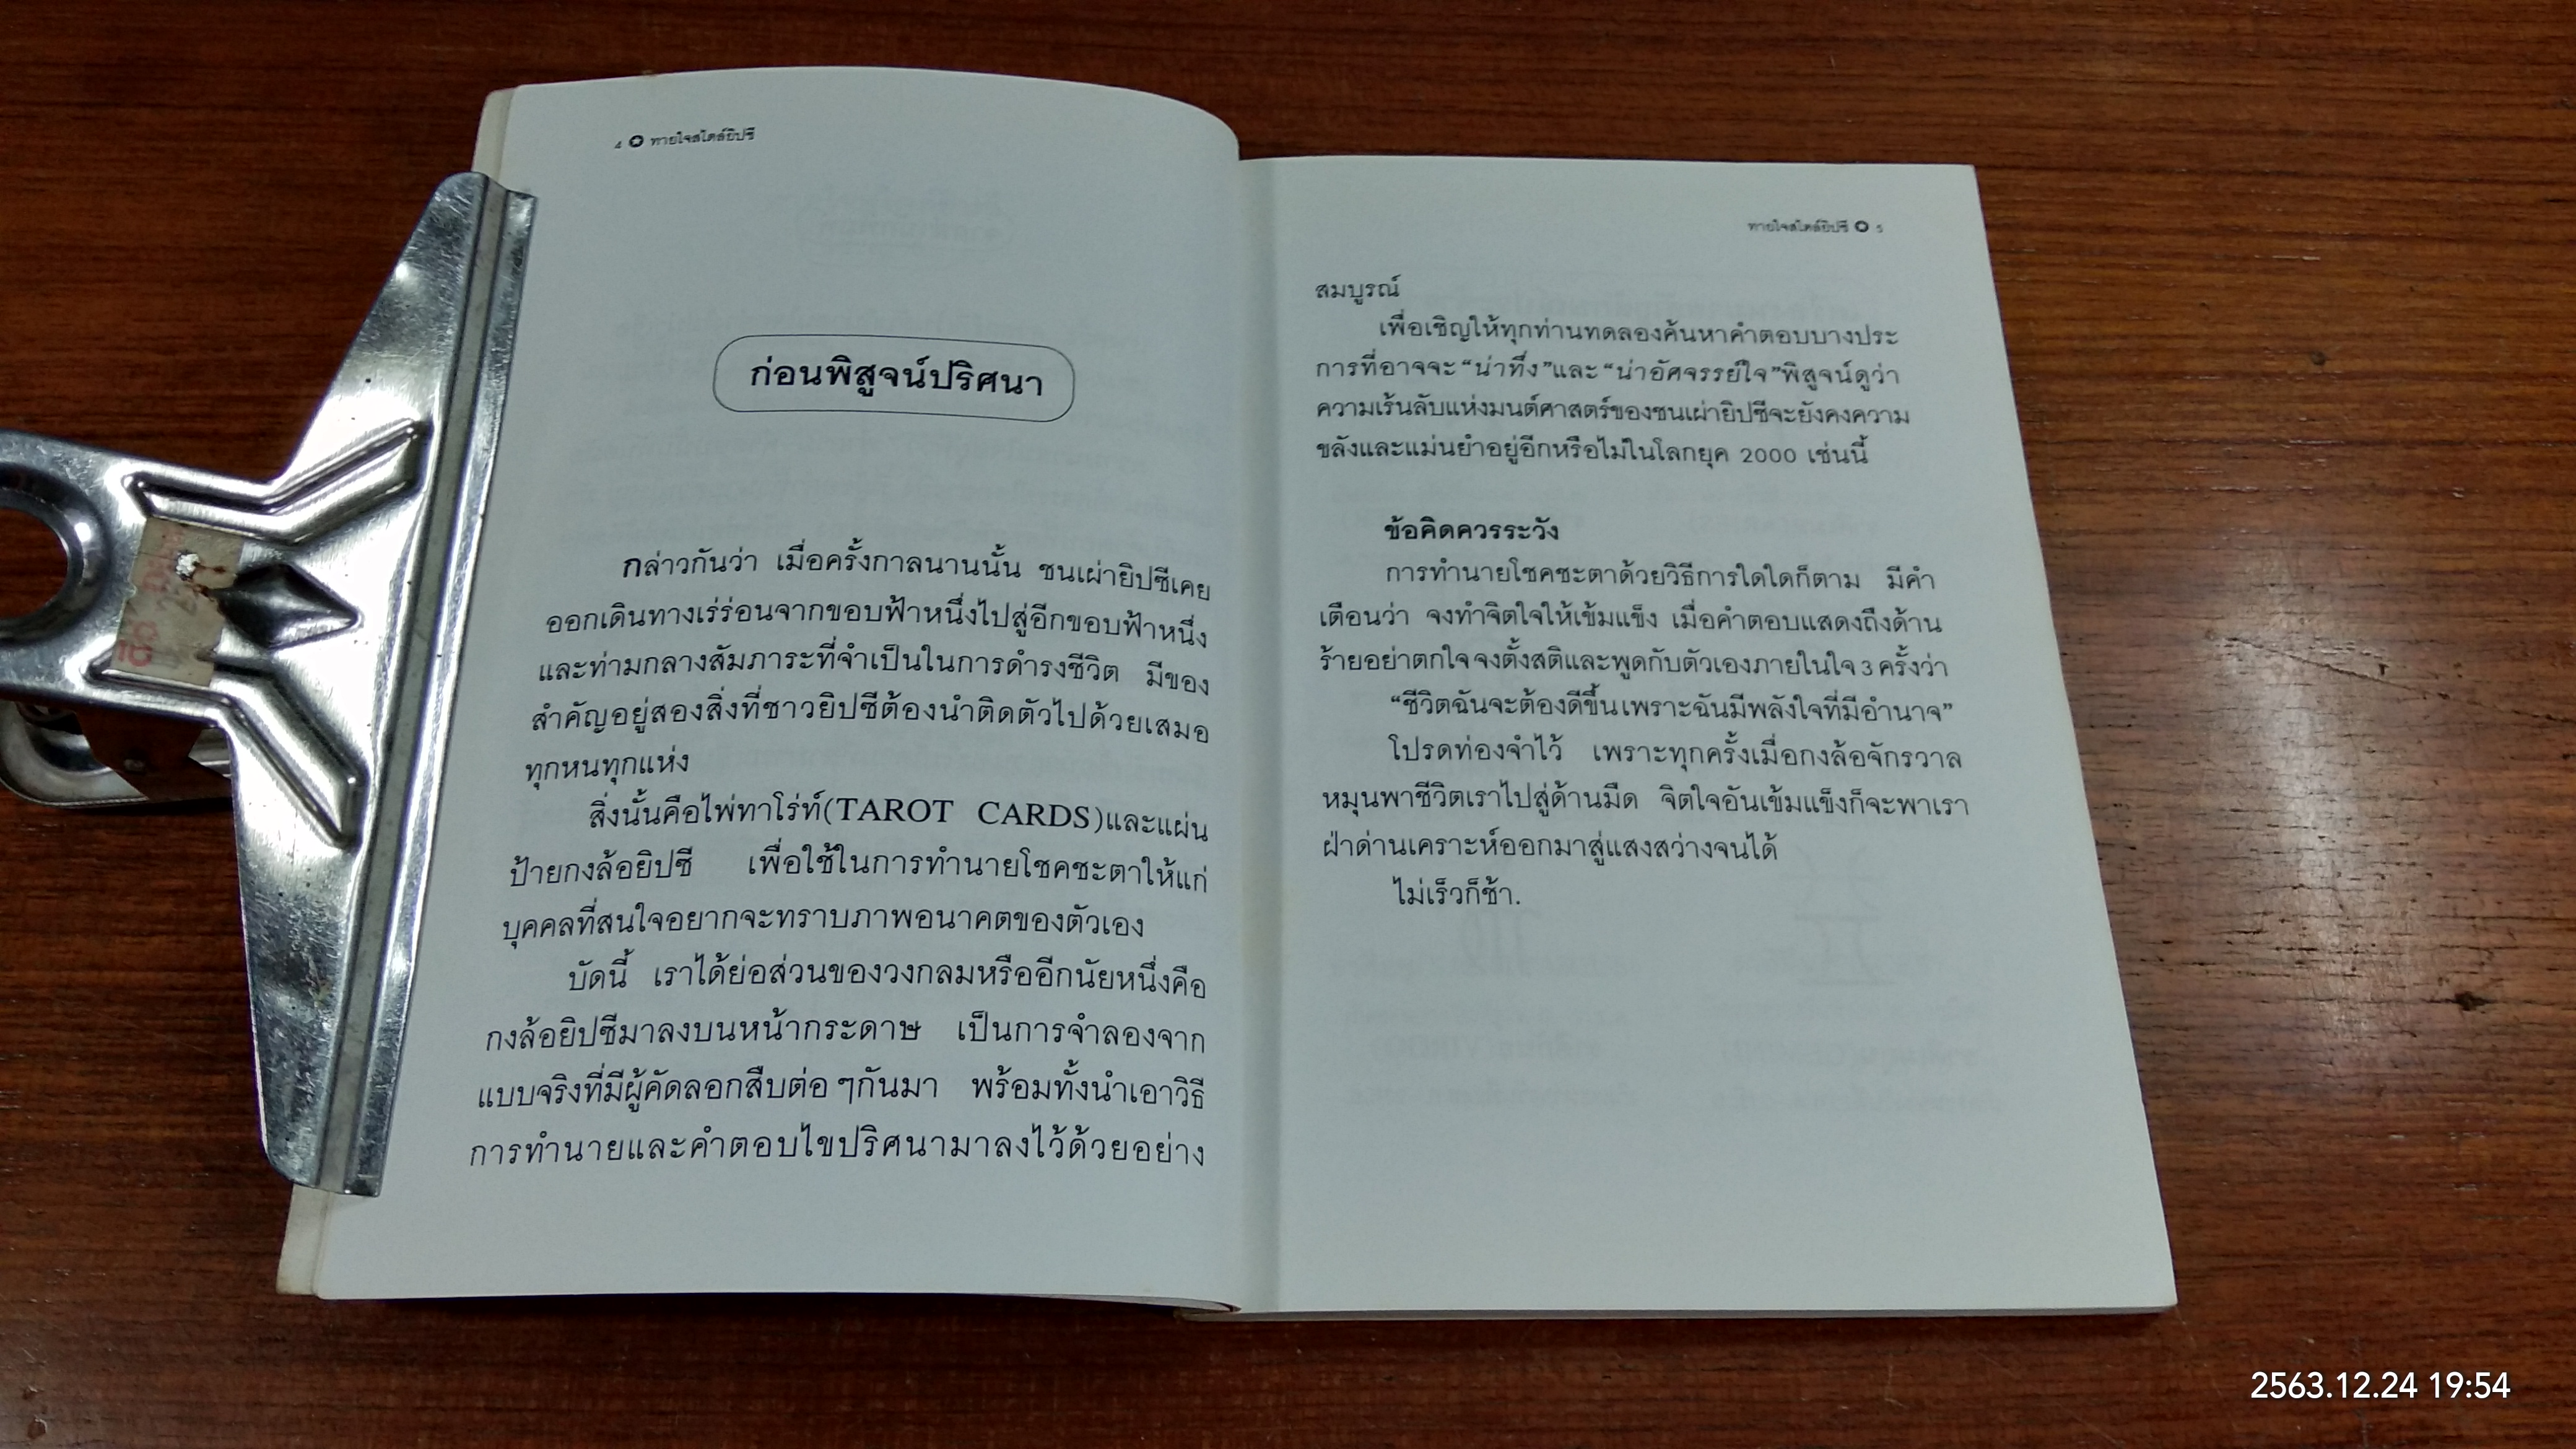 4 ✪ ทายใจสไตล์ยิปซี
ก่อนพิสูจน์ปริศนา
กล่าวกันว่า เมื่อครั้งกาลนานนั้น ชนเผ่ายิปซีเคย
ออกเดินทางเร่ร่อนจากขอบฟ้าหนึ่งไปสู่อีกขอบฟ้าหนึ่ง
และท่ามกลางสัมภาระที่จำเป็นในการดำรงชีวิต มีของ
สำคัญอยู่สองสิ่งที่ชาวยิปซีต้องนำติดตัวไปด้วยเสมอ
ทุกหนทุกแห่ง
สิ่งนั้นคือไพ่ทาโร่ท์(TAROT CARDS)และแผ่น
ป้ายกงล้อยิปซี เพื่อใช้ในการทำนายโชคชะตาให้แก่
บุคคลที่สนใจอยากจะทราบภาพอนาคตของตัวเอง
บัดนี้ เราได้ย่อส่วนของวงกลมหรืออีกนัยหนึ่งคือ
กงล้อยิปซีมาลงบนหน้ากระดาษ เป็นการจำลองจาก
แบบจริงที่มีผู้คัดลอกสืบต่อ ๆกันมา พร้อมทั้งนำเอาวิธี
การทำนายและคำตอบไขปริศนามาลงไว้ด้วยอย่าง
ทายใจสไตล์ยิปซี ✪ 5
สมบูรณ์
เพื่อเชิญให้ทุกท่านทดลองค้นหาคำตอบบางประ
การที่อาจจะ “น่าทึ่ง”และ “น่าอัศจรรย์ใจ”พิสูจน์ดูว่า
ความเร้นลับแห่งมนต์ศาสตร์ของชนเผ่ายิปซีจะยังคงความ
ขลังและแม่นยำอยู่อีกหรือไม่ในโลกยุค 2000 เช่นนี้
ข้อคิดควรระวัง
การทำนายโชคชะตาด้วยวิธีการใดใดก็ตาม มีคำ
เตือนว่า จงทำจิตใจให้เข้มแข็ง เมื่อคำตอบแสดงถึงด้าน
ร้ายอย่าตกใจ จงตั้งสติและพูดกับตัวเองภายในใจ 3 ครั้งว่า
“ชีวิตฉันจะต้องดีขึ้น เพราะฉันมีพลังใจที่มีอำนาจ”
โปรดท่องจำไว้ เพราะทุกครั้งเมื่อกงล้อจักรวาล
หมุนพาชีวิตเราไปสู่ด้านมืด จิตใจอันเข้มแข็งก็จะพาเรา
ฝ่าด่านเคราะห์ออกมาสู่แสงสว่างจนได้
ไม่เร็วก็ช้า.
2563.12.24 19:54